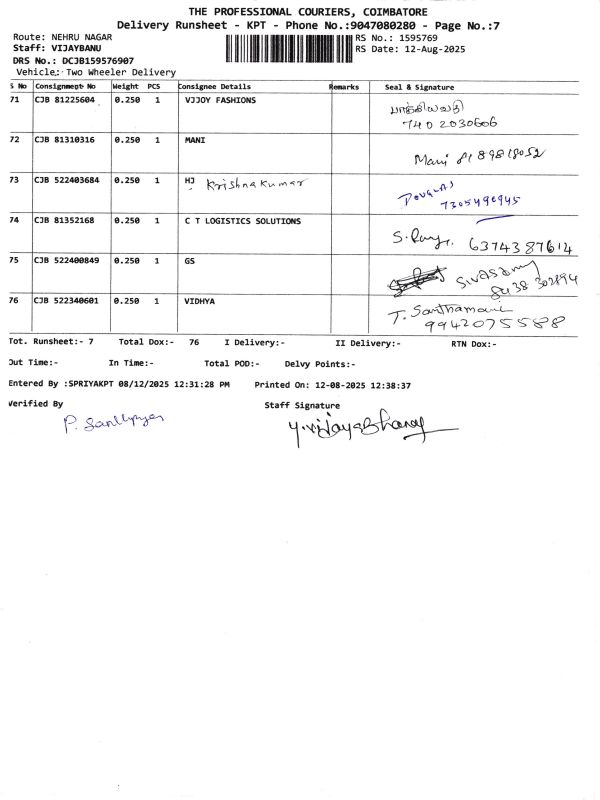 THE PROFESSIONAL COURIERS, COIMBATORE
Delivery Runsheet - KPT - Phone No.:9047080280 - Page No.:7
Route: NEHRU NAGAR RS No.: 1595769
Staff: VIJAYBANU RS Date: 12-Aug-2025
DRS No.: DCJB159576907
Vehicle:- Two Wheeler Delivery
S No Consignment No Weight PCS Consignee Details Remarks Seal & Signature
71 CJB 81225604 0.250 1 VJJOY FASHIONS
7402030606
72 CJB 81310316 0.250 1 MANI Mani
73 CJB 522403684 0.250 1 HJ Krishnakumar DOUGLAS
7305490945
74 CJB 81352168 0.250 1 C T LOGISTICS SOLUTIONS S. 6374387614
75 CJB 522400849 0.250 1 GS Sivasamy
76 CJB 522340601 0.250 1 VIDHYA T. Santhamani
9942075588
Tot. Runsheet:- 7 Total Dox:- 76 I Delivery:- II Delivery:- RTN Dox:-
Out Time:- In Time:- Total POD:- Delvy Points:-
Entered By :SPRIYAKPT 08/12/2025 12:31:28 PM Printed On: 12-08-2025 12:38:37
Verified By Staff Signature